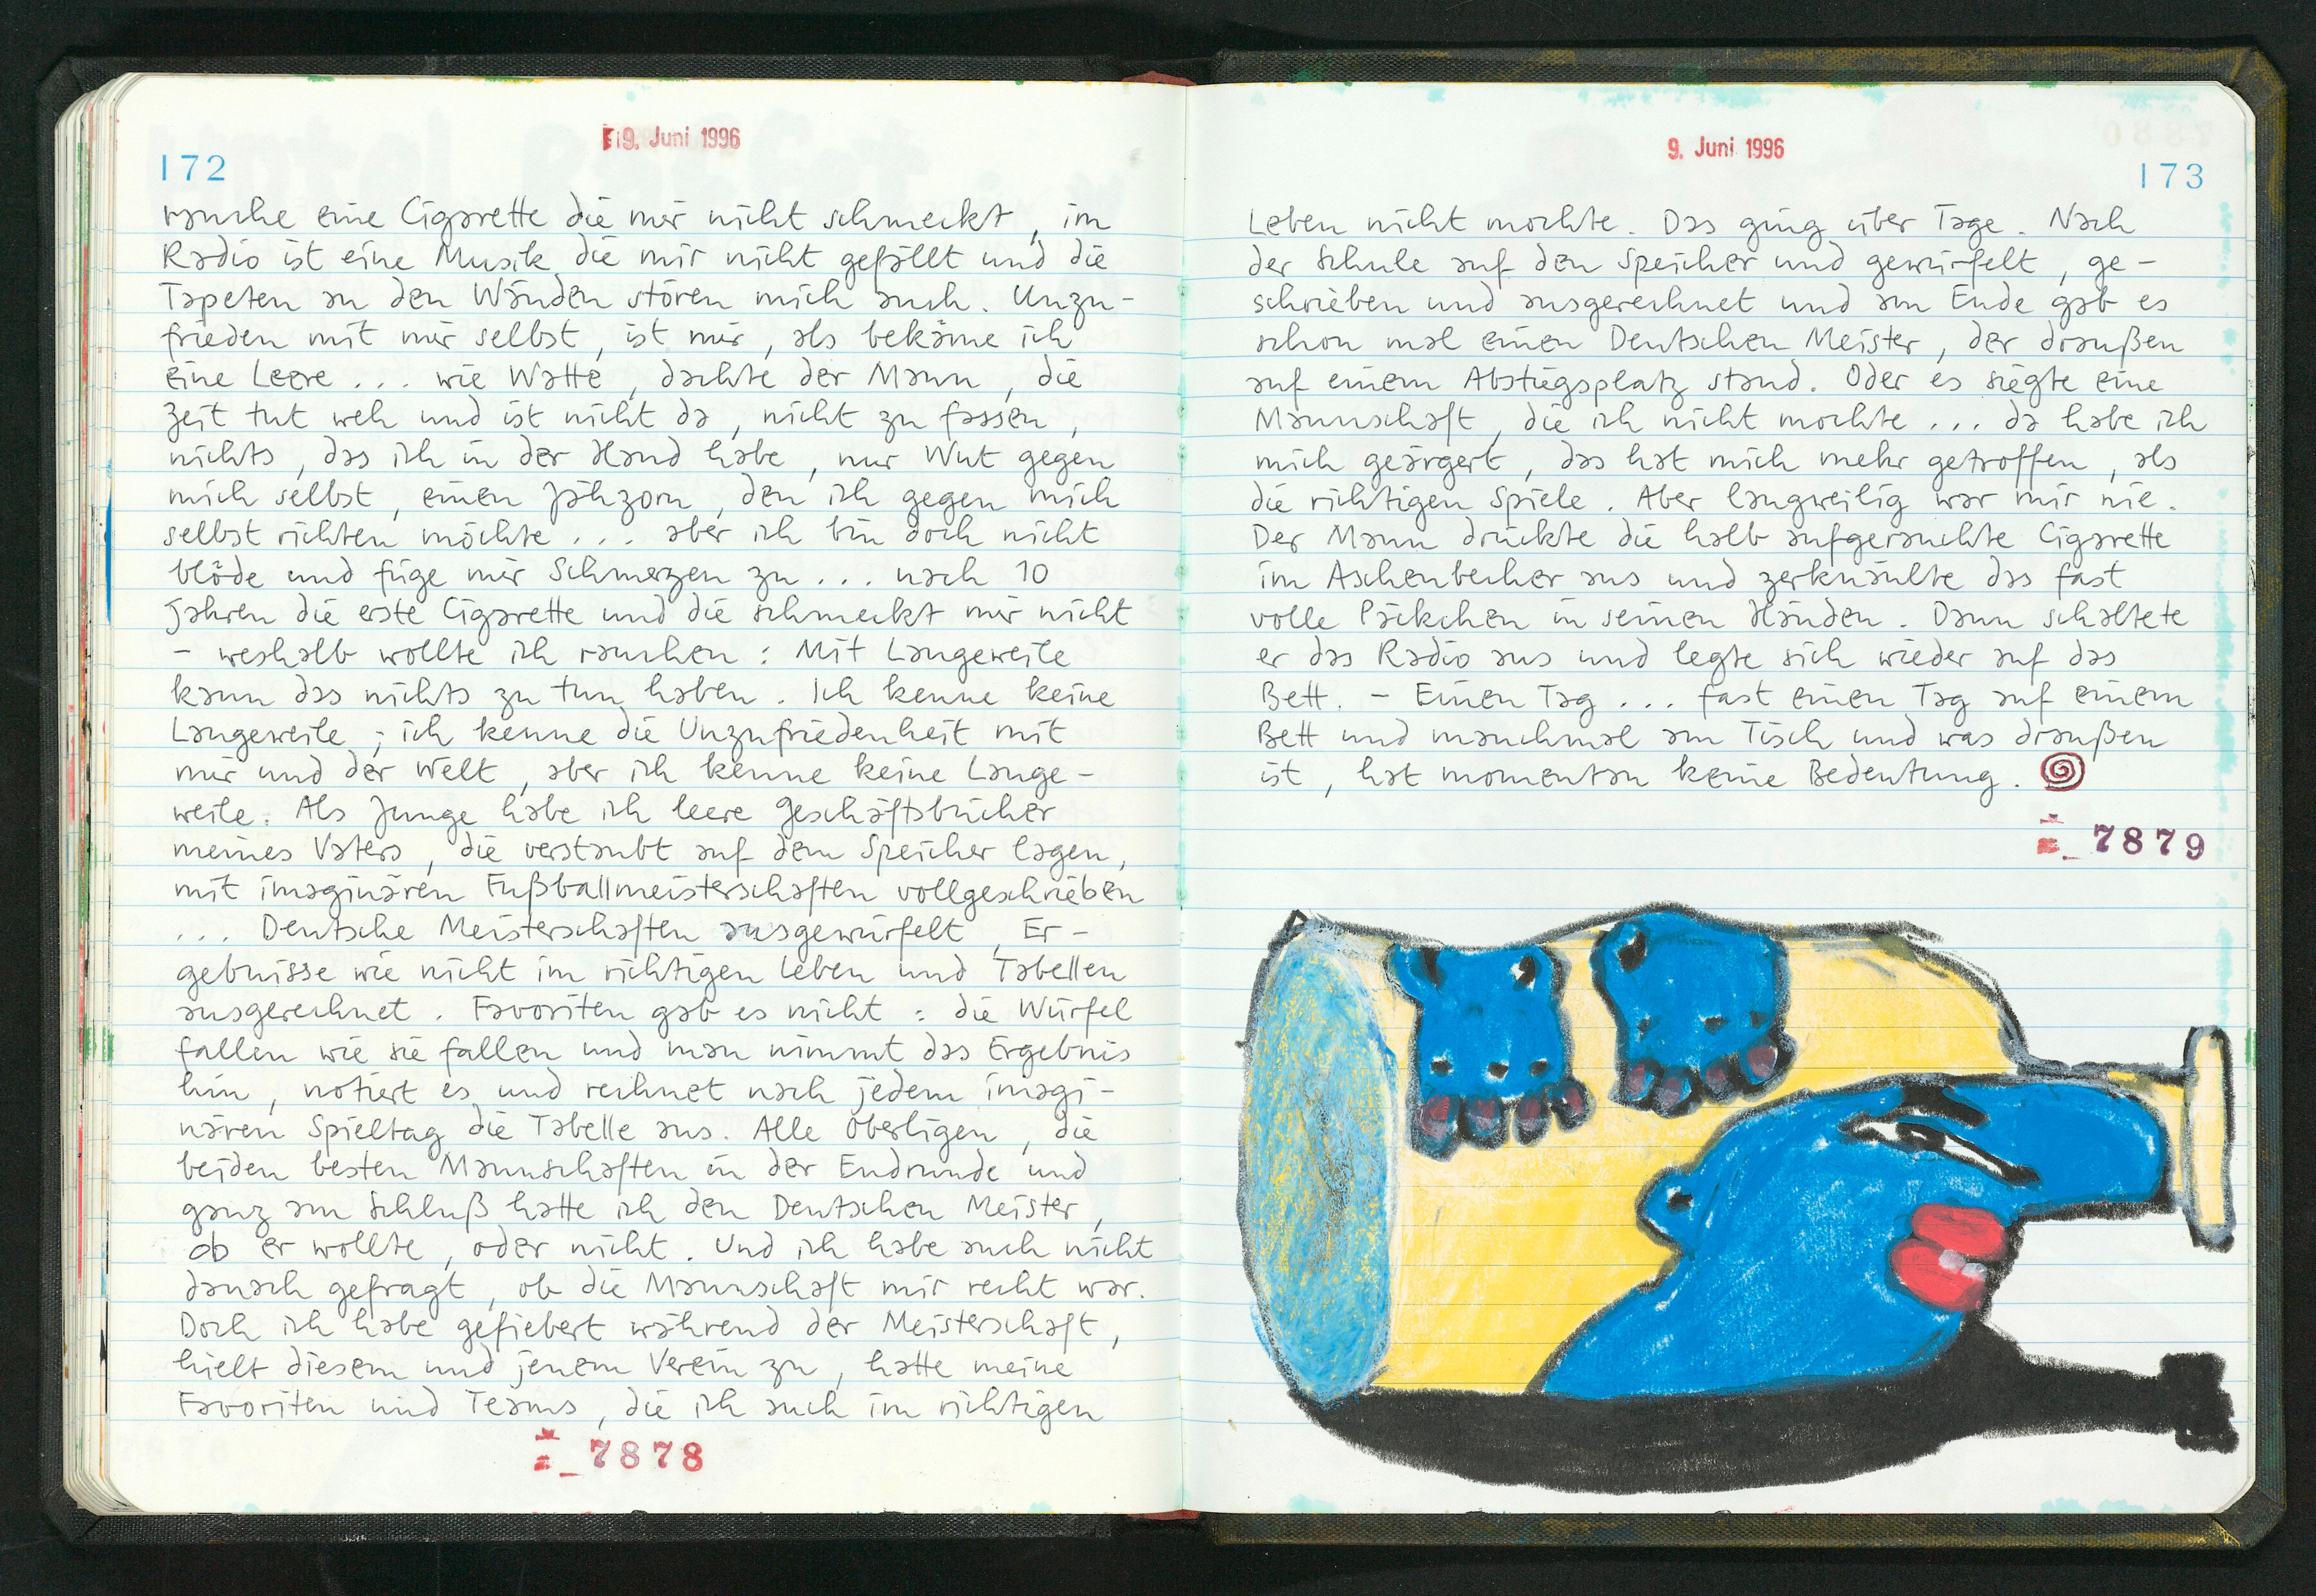 19. Juni 1996
172
rauche eine Cigarette die mir nicht schmeckt, im
Radio ist eine Musik die mir nicht gefällt und die
Tapeten an den Wänden stören mich auch. Unzu-
frieden mit mir selbst, ist mir, als bekäme ich
eine Leere ... wie Watte, dachte der Mann, die
Zeit tut weh und ist nicht da, nicht zu fassen,
nichts, das ich in der Hand habe, nur Wut gegen
mich selbst, einen Jähzorn, den ich gegen mich
selbst richten möchte ... aber ich bin doch nicht
blöde und füge mir Schmerzen zu ... nach 10
Jahren die erste Cigarette und die schmeckt mir nicht
- weshalb wollte ich rauchen: Mit Langeweile
kann das nichts zu tun haben. Ich kenne keine
Langeweile; ich kenne die Unzufriedenheit mit
mir und der Welt, aber ich kenne keine Lange-
weile. Als Junge habe ich leere Geschäftsbücher
meines Vaters, die verstaubt auf dem Speicher lagen,
mit imaginären Fußballmeisterschaften vollgeschrieben
... Deutsche Meisterschaften ausgewürfelt, Er-
gebnisse wie nicht im richtigen Leben und Tabellen
ausgerechnet. Favoriten gab es nicht: die Würfel
fallen wie sie fallen und man nimmt das Ergebnis
hin, notiert es und rechnet nach jedem imagi-
nären Spieltag die Tabelle aus. Alle Oberligen, die
beiden besten Mannschaften in der Endrunde und
ganz am Schluß hatte ich den Deutschen Meister,
ob er wollte, oder nicht. Und ich habe auch nicht
danach gefragt, ob die Mannschaft mir recht war.
Doch ich habe gefiebert während der Meisterschaft,
hielt diesem und jenem Verein zu, hatte meine
Favoriten und Teams, die ich auch im richtigen
7878
9. Juni 1996
173
Leben nicht mochte. Das ging über Tage. Nach
der Schule auf den Speicher und gewürfelt, ge-
schrieben und ausgerechnet und am Ende gab es
schon mal einen Deutschen Meister, der draußen
auf einem Abstiegsplatz stand. Oder es siegte eine
Mannschaft, die ich nicht mochte ... da habe ich
mich geärgert, das hat mich mehr getroffen, als
die richtigen Spiele. Aber langweilig war mir nie.
Der Mann drückte die halb aufgerauchte Cigarette
im Aschenbecher aus und zerknäulte das fast
volle Päckchen in seinen Händen. Dann schaltete
er das Radio aus und legte sich wieder auf das
Bett. - Einen Tag ... fast einen Tag auf einem
Bett und manchmal am Tisch und was draußen
ist, hat momentan keine Bedeutung.
7879